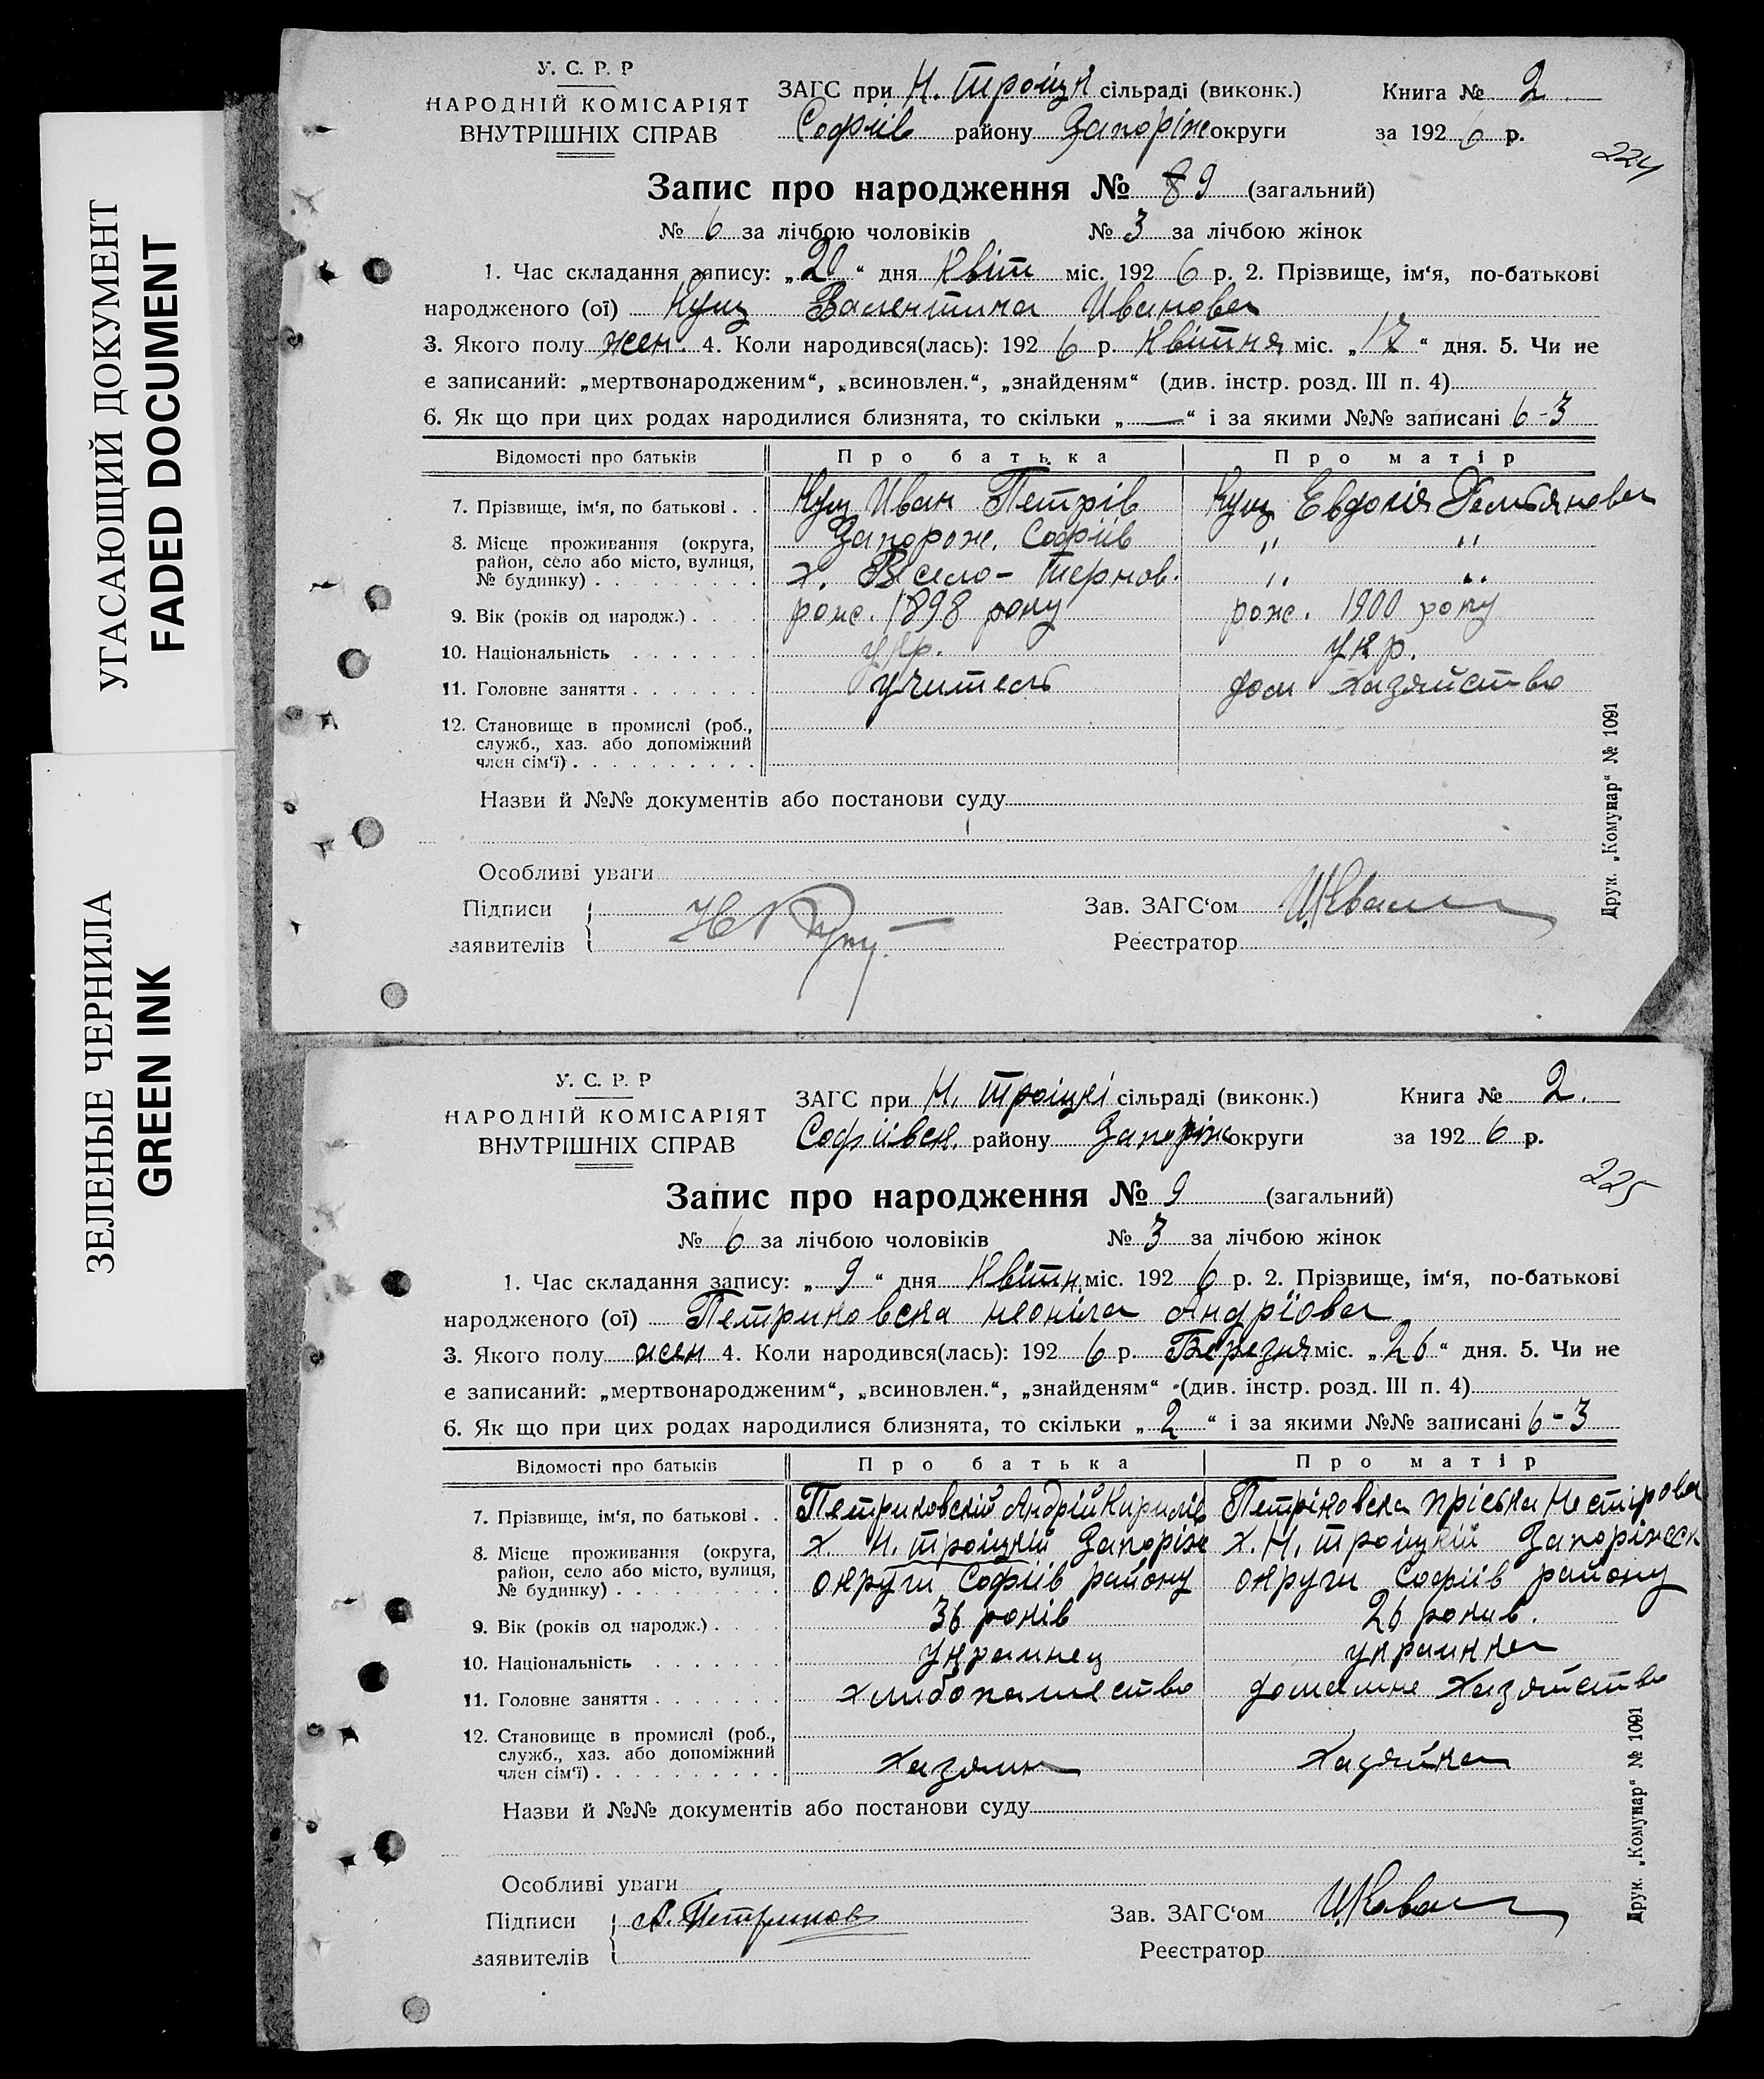 УГАСАЮЩИЙ ДОКУМЕНТ
FADED DOCUMENT
ЗЕЛЕНЫЕ ЧЕРНИЛА
GREEN INK
У. С. Р. Р
НАРОДНІЙ КОМІСАРІЯТ
ВНУТРІШНІХ СПРАВ
ЗАГС при Н. Троіцкі сільраді (виконк.) Книга № 2.
Софіїв району Запоріж округи за 192 6 р.
224
Запис про народження № 89 (загальний)
№ 6 за лічбою чоловіків № 3 за лічбою жінок
1. Час складання запису: „20“ дня Квіт міс. 192 6 р. 2. Прізвище, ім‘я, по-батькові
народженого (ої) Кущ Валентина Иванова
3. Якого полу жен. 4. Коли народився(лась): 192 6 р. Квітня міс. „17“ дня. 5. Чи не
є записаний: „мертвонародженим“, „всиновлен.“, „знайденям“ (див. інстр. розд. III п. 4)
6. Як що при цих родах народилися близнята, то скільки „—“ і за якими №№ записані 6-3
Відомості про батьків Про батька Про матір
7. Прізвище, ім‘я, по батькові . . Кущ Иван Петрів Кущ Евдокія Демьянова
8. Місце проживання (округа, район, село або місто, вулиця, № будинку) Запорож. Софіїв " "
х. Весело-Тернов. " "
9. Вік (років од народж.) . . . . рож. 1898 року рож. 1900 року
10. Національність . . . . . . . укр. укр.
11. Головне заняття . . . . . . . учитель дом хазяйство
12. Становище в промислі (роб.,
служб., хаз. або допоміжний
член сім‘ї) . . . . . . . . . .
Назви й №№ документів або постанови суду
Особливі уваги
Підписи Зав. ЗАГС‘ом
заявителів Реєстратор
Друк. „Комунар“ № 1091
У. С. Р. Р
НАРОДНІЙ КОМІСАРІЯТ
ВНУТРІШНІХ СПРАВ
ЗАГС при Н. Троіцкі сільраді (виконк.) Книга № 2.
Софіївск. району Запоріж округи за 192 6 р.
225
Запис про народження № 9 (загальний)
№ 6 за лічбою чоловіків № 3 за лічбою жінок
1. Час складання запису: „9“ дня Квітн. міс. 192 6 р. 2. Прізвище, ім‘я, по-батькові
народженого (ої) Петриковска неоніла Андріова
3. Якого полу жен 4. Коли народився(лась): 192 6 р. Березня міс. „26“ дня. 5. Чи не
є записаний: „мертвонародженим“, „всиновлен.“, „знайденям“ (див. інстр. розд. III п. 4)
6. Як що при цих родах народилися близнята, то скільки „2“ і за якими №№ записані 6-3
Відомості про батьків Про батька Про матір
7. Прізвище, ім‘я, по батькові . . Петриковскій Андрій Кирилів Петріковска Пріська Нестірова
8. Місце проживання (округа, район, село або місто, вулиця, № будинку) х. Н. Троіцкій Запоріж х. Н. Троіцкій Запоріжск
округи Софіїв району округи Софіїв району
9. Вік (років од народж.) . . . . 36 років 26 років.
10. Національність . . . . . . . украинец украинка
11. Головне заняття . . . . . . . хлибопашество домашне хазяйство
12. Становище в промислі (роб.,
служб., хаз. або допоміжний
член сім‘ї) . . . . . . . . . . хазяин хазяйка
Назви й №№ документів або постанови суду
Особливі уваги
Підписи А. Петриков Зав. ЗАГС‘ом
заявителів Реєстратор
Друк. „Комунар“ № 1091